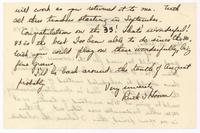 will work as you returned it to me. Until
set does reaches starting in September.
Congratulations on the 35! That's wonderful!
80 is the best I've been able to do since then.
Wish you would play on those wonderfully, big
pine greens.
I'll be back around the tenth of August
probably.
Very sincerely